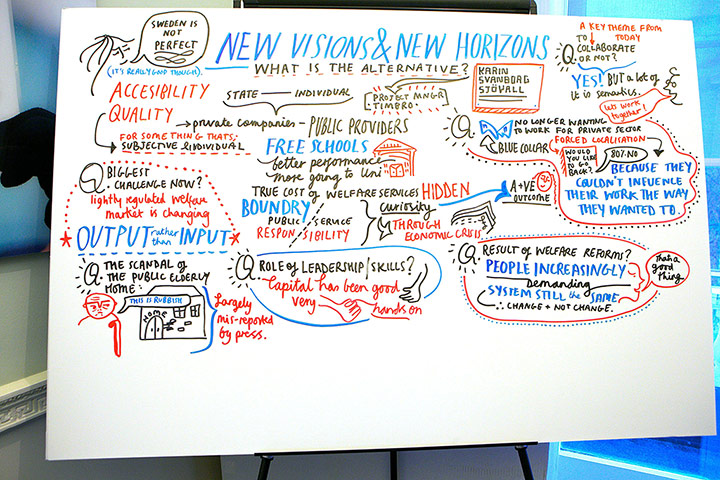 SWEDEN IS
NOT
PERFECT
(IT'S REALLY GOOD THOUGH).
NEW VISIONS & NEW HORIZONS
WHAT IS THE ALTERNATIVE?
KARIN
SVANBORG
SJÖVALL
PROJECT MNGR
TIMBRO
ACCESIBILITY
QUALITY
FOR SOMETHING THATS;
SUBJECTIVE & INDIVIDUAL
STATE — INDIVIDUAL
private companies – PUBLIC PROVIDERS
FREE SCHOOLS
better performance
more going to Uni
TRUE COST OF WELFARE SERVICES HIDDEN
BOUNDRY
PUBLIC / SERVICE
RESPONSIBILITY
Curiosity
THROUGH
ECONOMIC CRISIS
A +VE
OUTCOME
Q BIGGEST
CHALLENGE NOW?
lightly regulated welfare
market is changing
OUTPUT rather than INPUT
Q THE SCANDAL OF
THE PUBLIC ELDERLY
HOME
THIS IS RUBBISH
HOME
Largely
mis-reported
by press.
Q ROLE OF LEADERSHIP/SKILLS?
Capital has been good
very
hands on
A KEY THEME FROM
TODAY
Q TO COLLABORATE
OR NOT?
YES! BUT a lot of
it is semantics.
Lets work
together!
Q NO LONGER WANTING
TO WORK FOR PRIVATE SECTOR
BLUE COLLAR
FORCED LOCALISATION
WOULD
YOU LIKE
TO GO
BACK?
80% NO
BECAUSE THEY
COULDN'T INFUENCE
THEIR WORK THE WAY
THEY WANTED TO.
Q RESULT OF WELFARE REFORMS?
PEOPLE INCREASINGLY
Demanding
SYSTEM STILL the SAME
∴ CHANGE + NOT CHANGE.
Thats a
good
thing